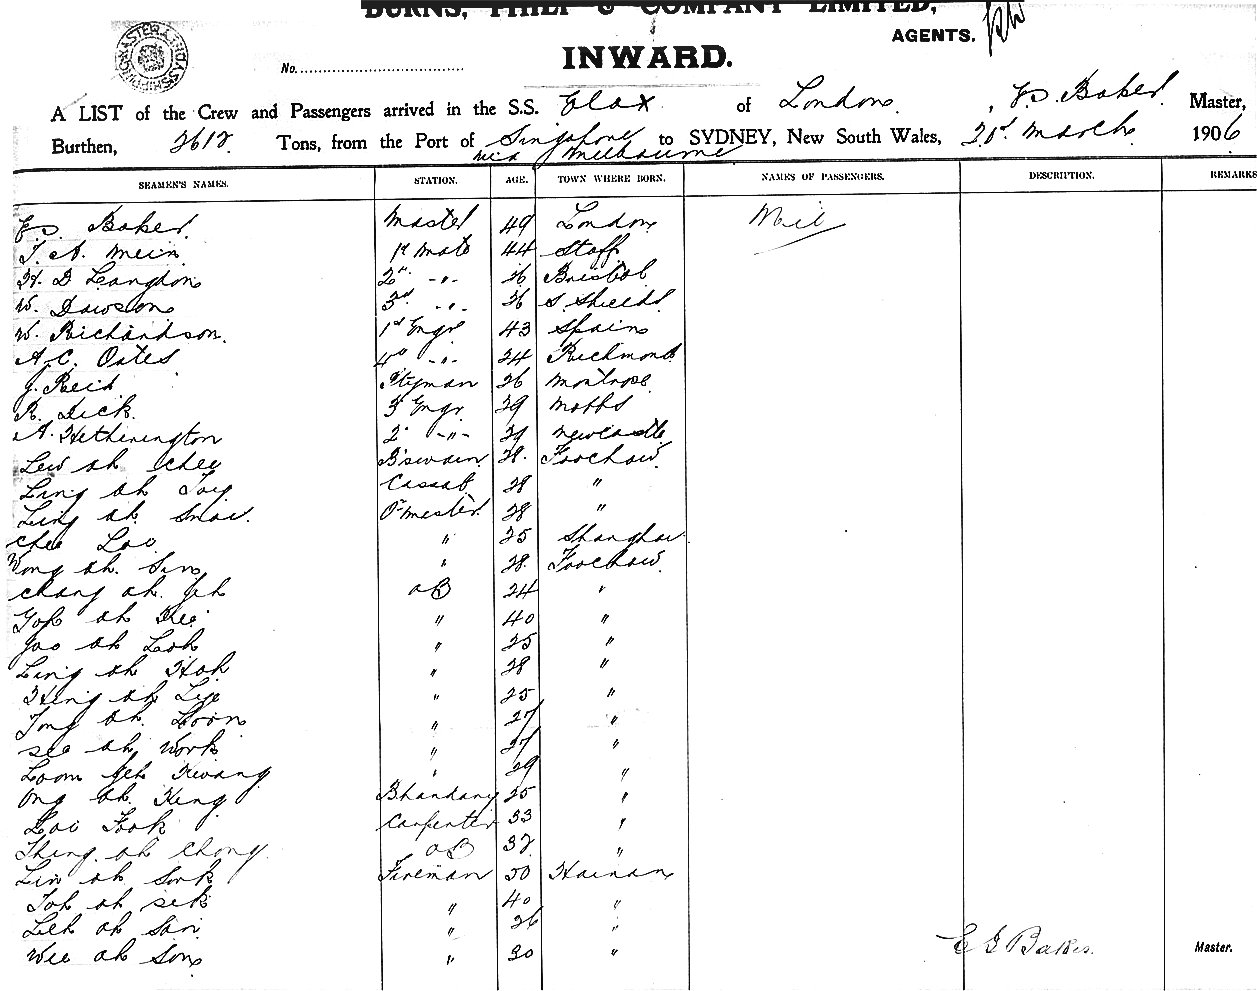 BURNS, PHILP & COMPANY LIMITED,
AGENTS.
INWARD.
No.
A LIST of the Crew and Passengers arrived in the S.S. Elax of London, Master,
Burthen, 3612 Tons, from the Port of Singapore to SYDNEY, New South Wales, March 1906
via Melbourne
SEAMEN'S NAMES. STATION. AGE. TOWN WHERE BORN. NAMES OF PASSENGERS. DESCRIPTION. REMARKS
Baker Master 49 London Nil
Mein 1st Mate 44 Staff
H. D Langdon 2" -"- 26 Bristol
W. Dawson 3rd " 26 S. Shields
W. Richardson 1st Engr 43 Spain
A.C. Oates 4th -"- 24 Richmond
J. Reid 26 Montrose
R. Dick 3 Engr 29
A. Hetherington 2" -"- 29 Newcastle
Lew ah Chey B'swain 28. Foochow
Ling ah Cassab 28 "
Ling ah 28 "
Chee Lao " 25 Shanghai
Wong ah. Sin " 28. Foochow
Chang ah. Jeh AB 24 "
ah " 40 "
ah Loh " 25 "
Ling ah Hok " 28 "
Hing ah " 25 "
Tong ah. " 27 "
See ah Work " 27 "
Loom Jeh Kwang " 29 "
Ong ah Heng Bhandary 25 "
Fook Carpenter 33 "
ah Chong AB 32 "
Lin ah Fireman Hainan
ah Sek " 40 "
ah San " 26 "
Wee ah Son " 30 "
Baker Master.